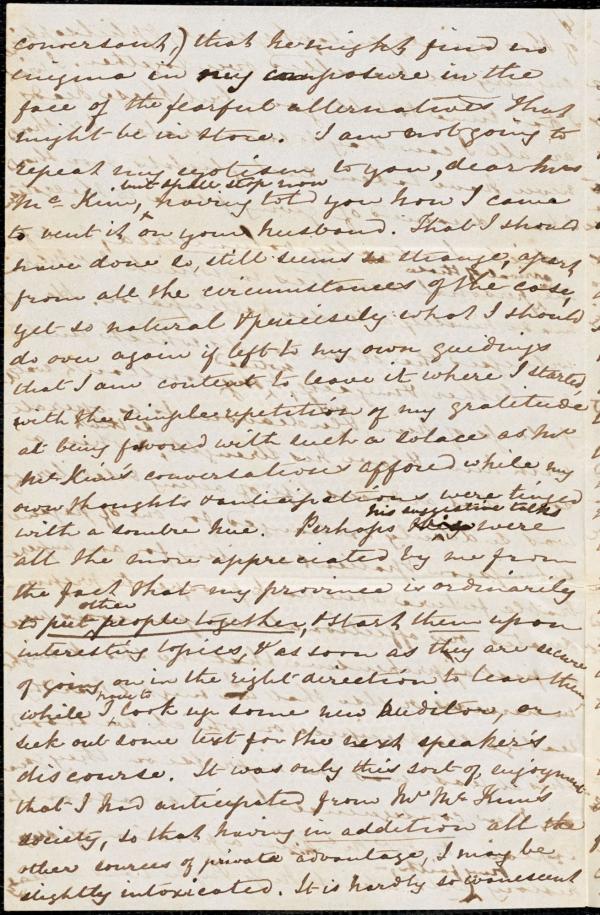 conversant,) that he might find no
enigma in my composure in the
face of the fearful alternatives that
might be in store. I am not going to
repeat my egotism to you, dear Mrs
but stop now
McKim, having told you how I came
to vent it on your husband. That I should
have done so, still seems so strange, apart
from all the circumstances of the case,
yet so natural & precisely what I should
do over again if left to my own guidings
that I am content to leave it where I started,
with the simple repetition of my gratitude
at being favored with such a solace as Mr
McKim's conversations afford while my
own thoughts & anticipations were tinged
his suggestive talks
with a sombre hue. Perhaps were
all the more appreciated by me from
the fact that my province is ordinarily
other
to put people together, & start them upon
interesting topics, & as soon as they are secure
of going on in the right direction to leave them,
while I look up some new auditor, or
seek out some text for the next speaker's
discourse. It was only this sort of enjoyment
that I had anticipated from Mr McKim's
society, so that having in addition all the
other sources of private advantage, I may be
slightly intoxicated. It is hardly so evanescent